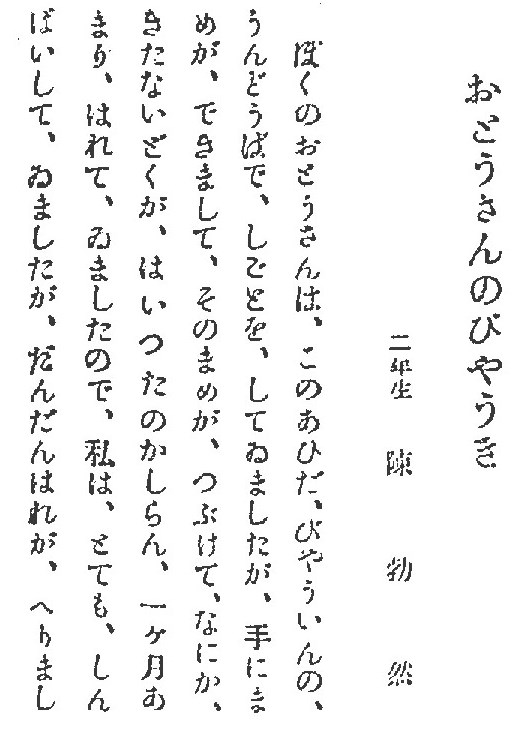 おとうさんのびやうき
二年生 陳勃然
ぼくのおとうさんは、このあひだ、びやういんの、
うんどうばで、しごとを、してゐましたが、手にま
めが、できまして、そのまめが、つぶけて、なにか、
きたないどくが、はいつたのかしらん、一ケ月あ
まり、はれて、ゐましたので、私は、とても、しん
ぱいして、ゐましたが、だんだんはれが、へりまし